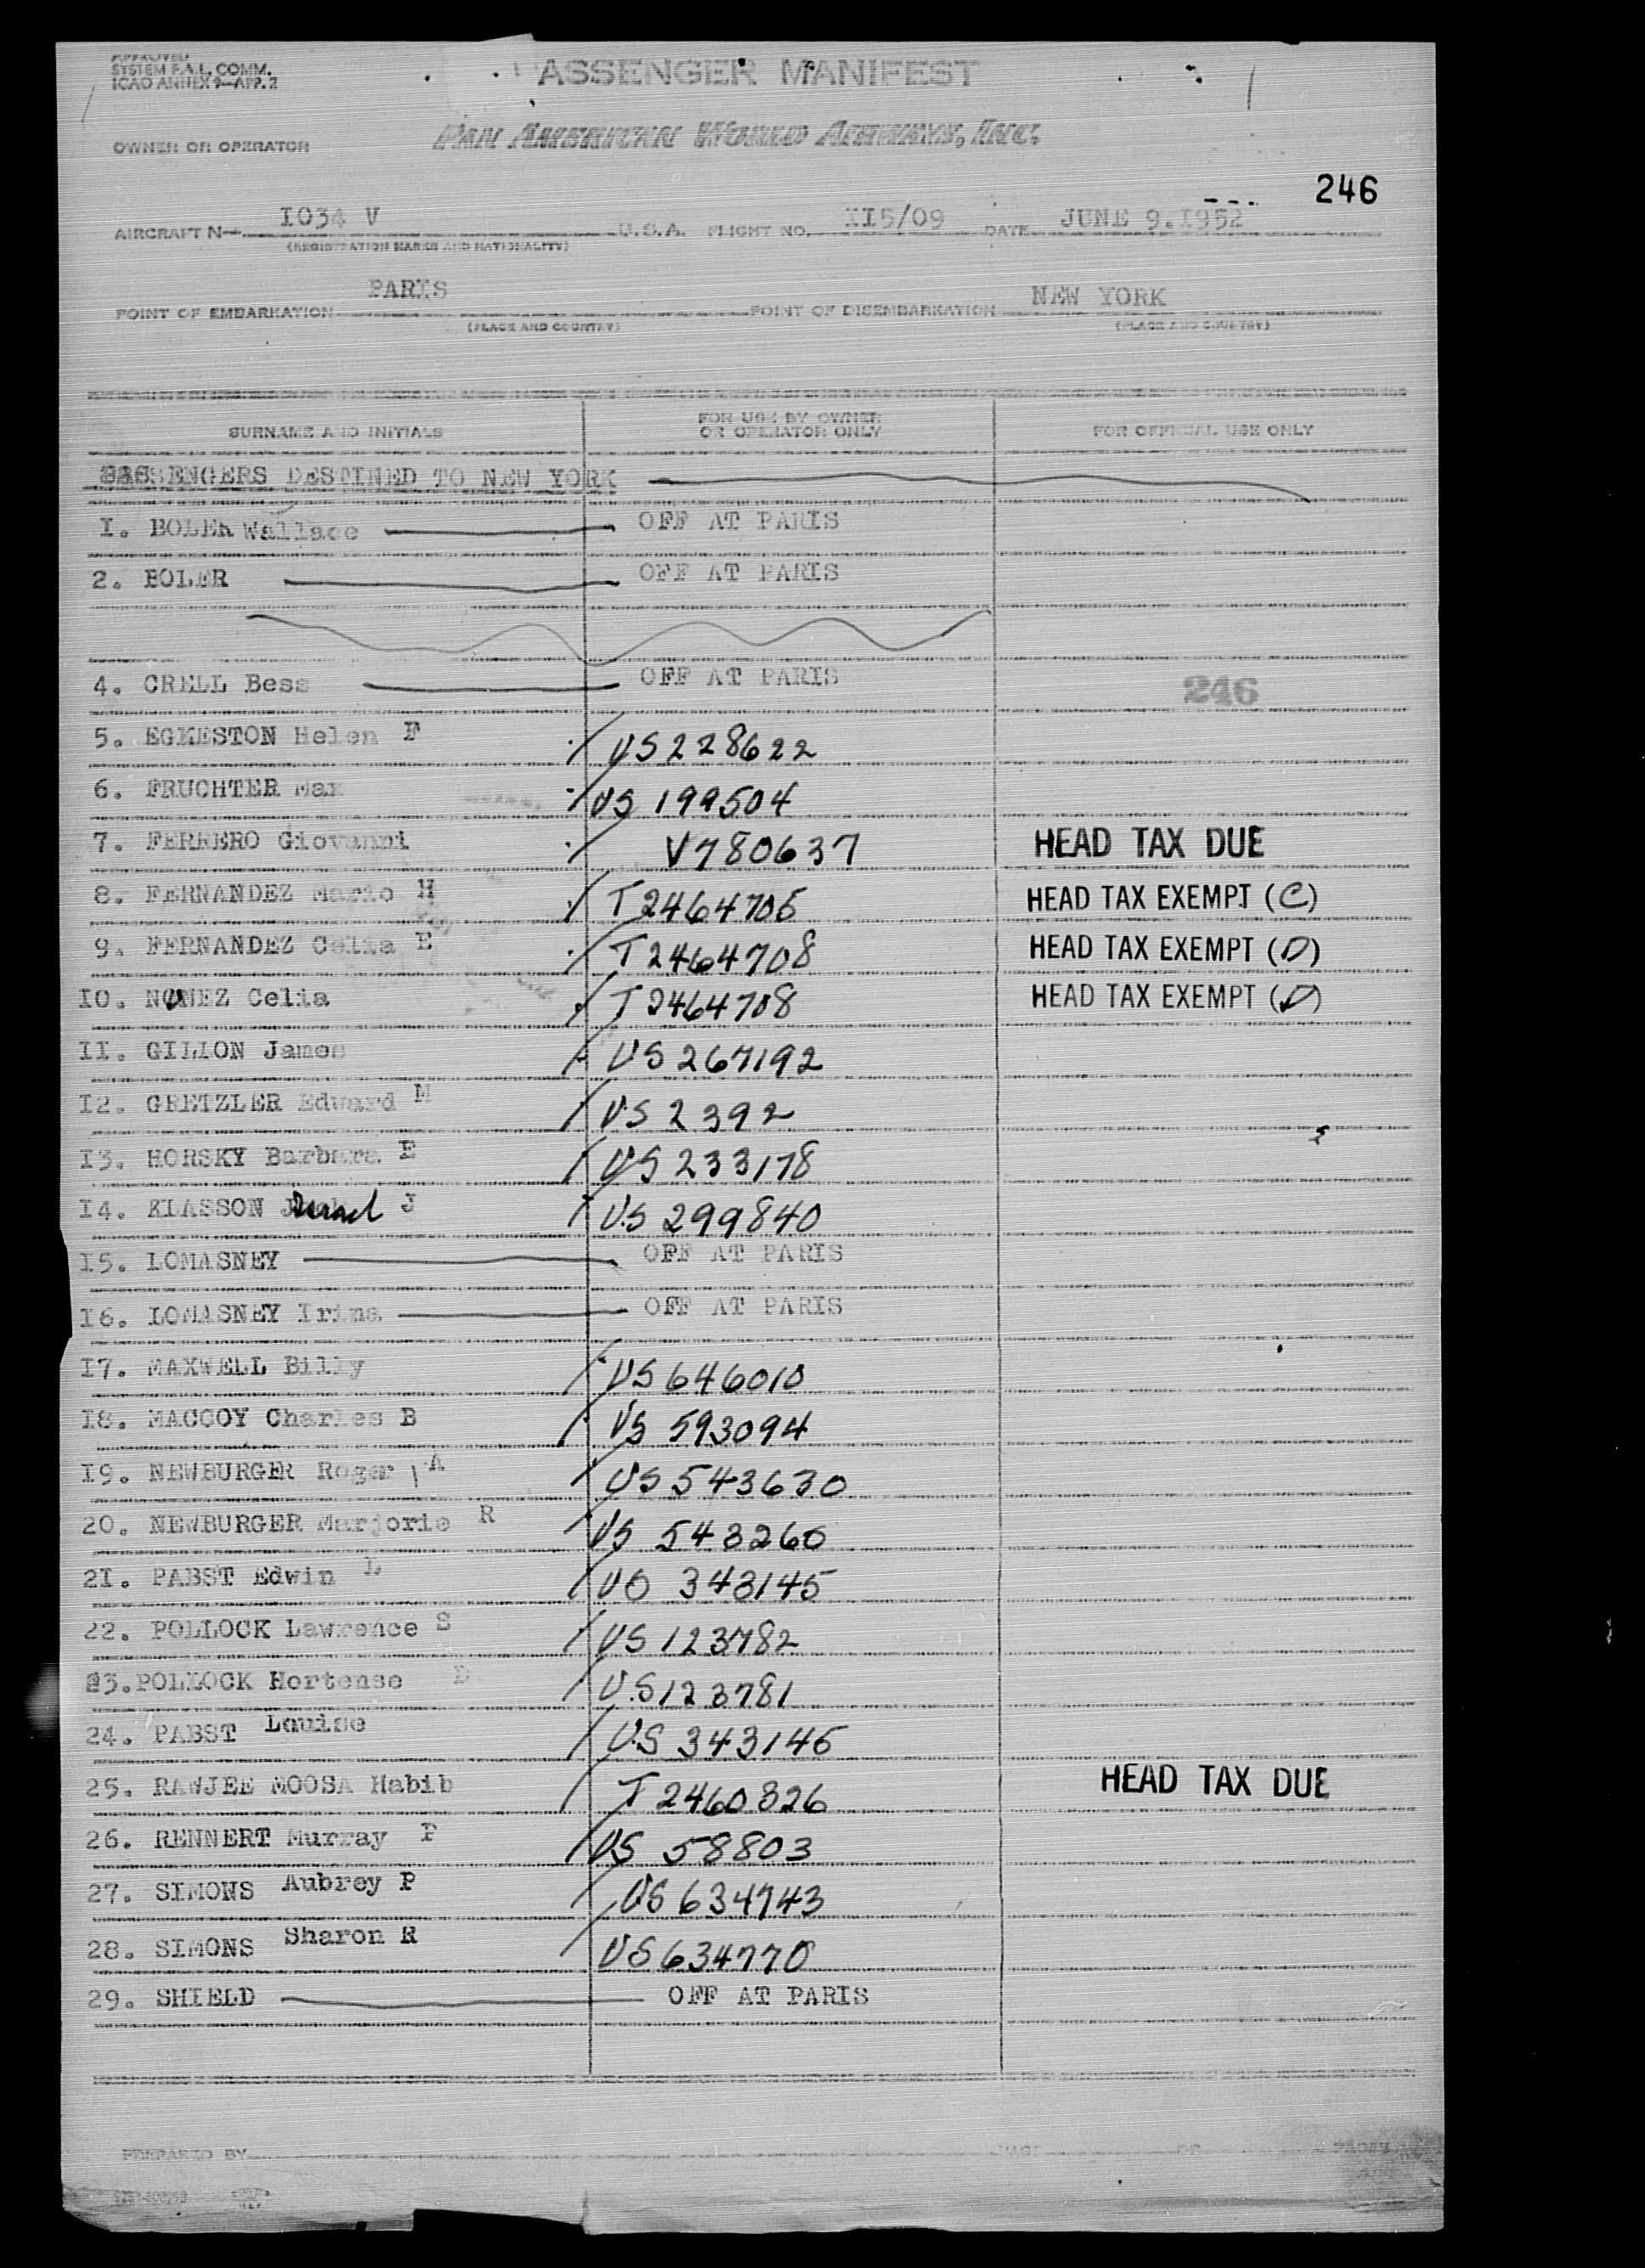 APPROVED
SYSTEM F.A.L. COMM.
ICAO ANNEX 9—APP. 2
ASSENGER MANIFEST
OWNER OR OPERATOR PAN AMERICAN WORLD AIRWAYS, INC.
246
AIRCRAFT N— I034 V U.S.A. FLIGHT NO. II5/09 DATE JUNE 9.I952
(REGISTRATION MARKS AND NATIONALITY)
POINT OF EMBARKATION PARIS POINT OF DISEMBARKATION NEW YORK
(PLACE AND COUNTRY) (PLACE AND COUNTRY)
SURNAME AND INITIALS FOR USE BY OWNER OR OPERATOR ONLY FOR OFFICIAL USE ONLY
PASSENGERS DESTINED TO NEW YORK
I. BOLER Wallace OFF AT PARIS
2. BOLER OFF AT PARIS
4. CRELL Bess OFF AT PARIS
246
5. EGKESTON Helen F US 228622
6. FRUCHTER Max US 199504
7. FERRERO Giovanni V780637 HEAD TAX DUE
8. FERNANDEZ Mario H T2464705 HEAD TAX EXEMPT (C)
9. FERNANDEZ Celia E T2464708 HEAD TAX EXEMPT (D)
IO. NUNEZ Celia T2464708 HEAD TAX EXEMPT (D)
II. GILLON James US 267192
I2. GRETZLER Edward M US 2392
I3. HORSKY Barbara E US 233178
I4. KLASSON J US 299840
I5. LOMASNEY OFF AT PARIS
I6. LOMASNEY Irina OFF AT PARIS
I7. MAXWELL Billy US 646010
I8. MACCOY Charles B US 593094
I9. NEWBURGER Roger A US 543630
20. NEWBURGER Marjorie R US 543260
2I. PABST Edwin L US 343145
22. POLLOCK Lawrence S US 123782
23.POLLOCK Hortense D US 123781
24. PABST Louise US 343146
25. RAWJEE MOOSA Habib T 2460826 HEAD TAX DUE
26. RENNERT Murray P US 58803
27. SIMONS Aubrey P US 634743
28. SIMONS Sharon R US 634770
29. SHIELD OFF AT PARIS
PREPARED BY PAGE OF PAGES